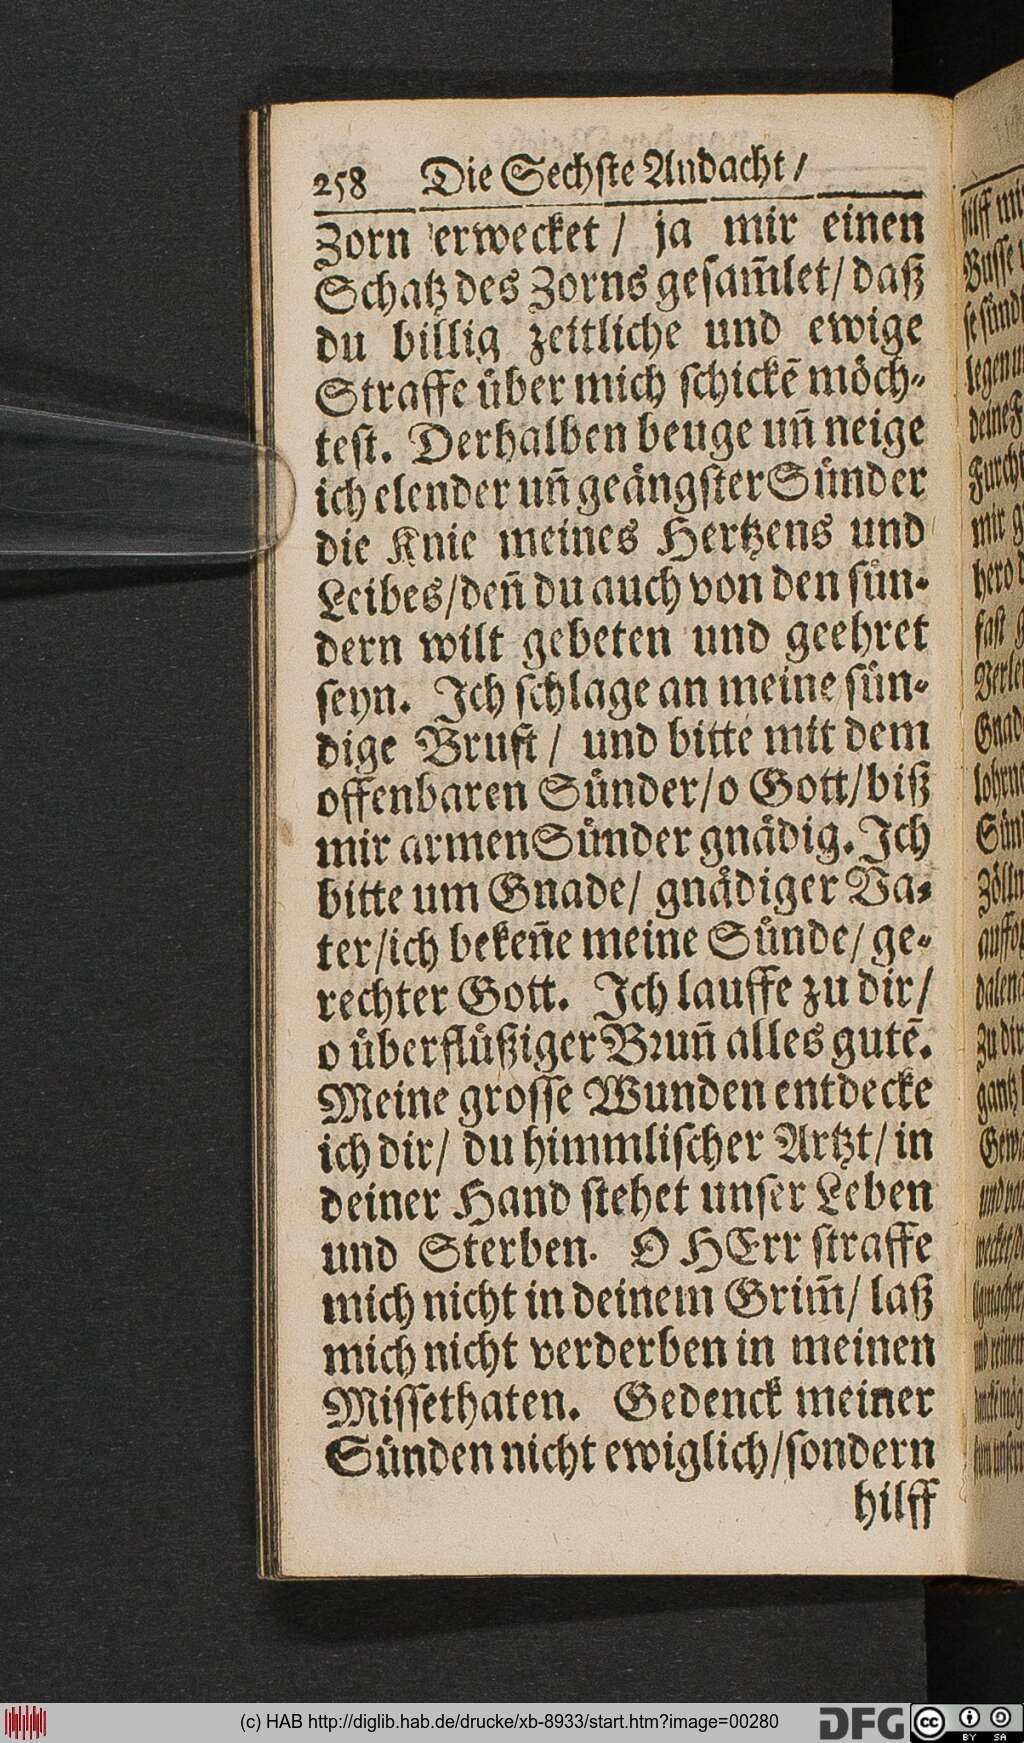 258 Die Sechste Andacht /
Zorn erwecket / ja mir einen
Schatz des Zorns gesam̃let / daß
du billig zeitliche und ewige
Straffe über mich schickẽ möch-
test. Derhalben beuge uñ neige
ich elender uñ geängster Sünder
die Knie meines Hertzens und
Leibes / deñ du auch von den sün-
dern wilt gebeten und geehret
seyn. Ich schlage an meine sün-
dige Brust / und bitte mit dem
offenbaren Sünder / o Gott / biß
mir armen Sünder gnädig. Ich
bitte um Gnade / gnädiger Va-
ter / ich bekeñe meine Sünde / ge-
rechter Gott. Ich lauffe zu dir /
o überflüßiger Bruñ alles gutẽ.
Meine grosse Wunden entdecke
ich dir / du himmlischer Artzt / in
deiner Hand stehet unser Leben
und Sterben. O HErr straffe
mich nicht in deinem Grim̃ / laß
mich nicht verderben in meinen
Missethaten. Gedenck meiner
Sünden nicht ewiglich / sondern
hilff
(c) HAB http://diglib.hab.de/drucke/xb-8933/start.htm?image=00280
DFG
cc BY SA